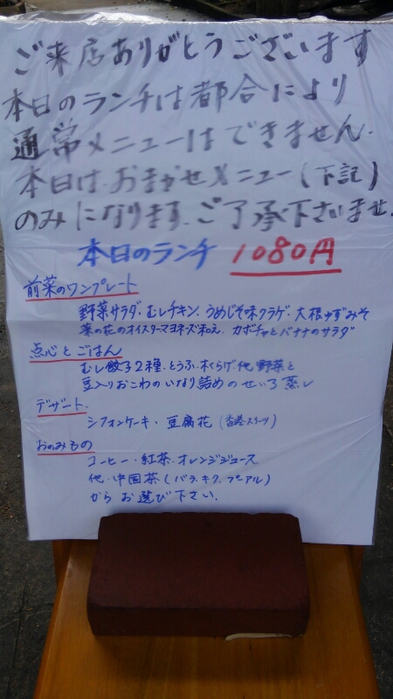 ご来店ありがとうございます
本日のランチは都合により
通常メニューはできません.
本日は、おまかせメニュー(下記)
のみになります。ご了承下さいませ.
本日のランチ 1080円
前菜のワンプレート
野菜サラダ.むしチキン.うめじそ味クラゲ.大根ゆずみそ
菜の花のオイスターマヨネーズ和え. カボチャとバナナのサラダ
点心とごはん
むし餃子2種.とうふ.木くらげ.他野菜と
豆入りおこわのいなり詰めのせいろ蒸し
デザート.
シフォンケーキ・豆腐花(香港スイーツ)
おのみもの
コーヒー・紅茶.オレンジジュース
他.中国茶(バラ.キク.プーアル)
からお選び下さい.